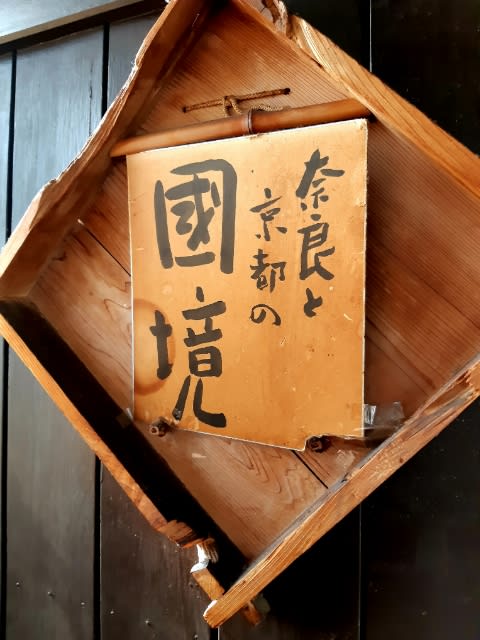 奈良と
京都の
國境